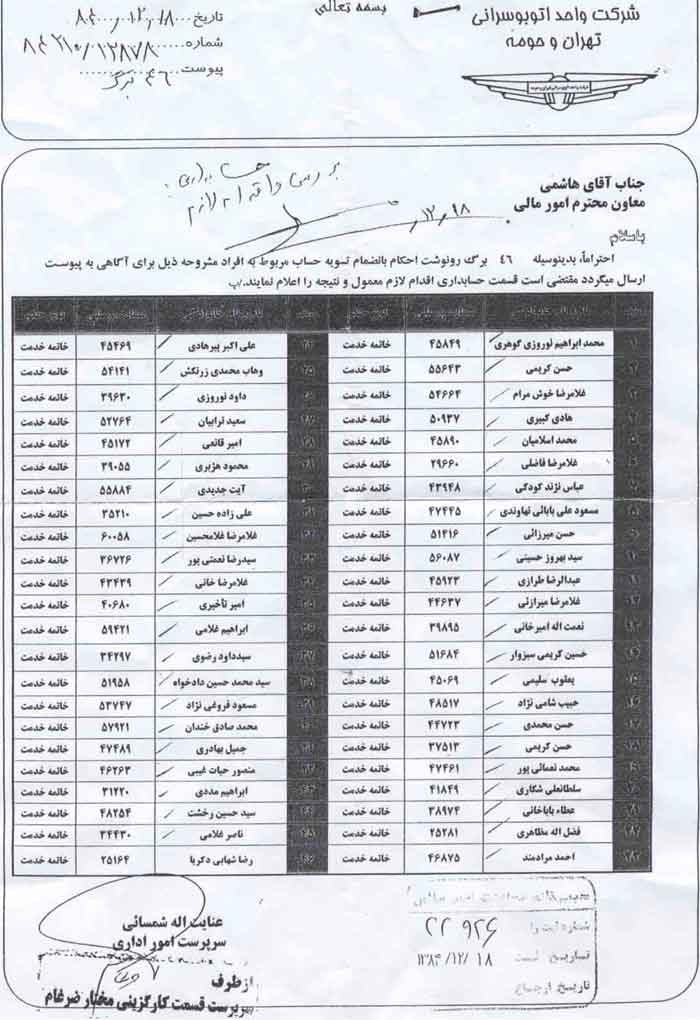 بسمه تعالی
شرکت واحد اتوبوسرانی
تهران و حومه
تاریخ
شماره ۸۴۲۱۰/۱۲۸۷۸
پیوست ۴۶ برگ
جناب آقای هاشمی
معاون محترم امور مالی
۱۲/۱۸
باسلام
احتراماً، بدینوسیله ۴۶ برگ رونوشت احکام بانضمام تسویه حساب مربوط به افراد مشروحه ذیل برای آگاهی به پیوست
ارسال میگردد مقتضی است قسمت حسابداری اقدام لازم معمول و نتیجه را اعلام نمایند.
محمد ابراهیم نوروزی گوهری ۴۵۸۴۹ خاتمه خدمت علی اکبر پیرهادی ۴۵۴۶۹ خاتمه خدمت
حسن کریمی ۵۵۶۴۳ خاتمه خدمت وهاب محمدی زرنکش ۵۴۱۴۱ خاتمه خدمت
غلامرضا خوش مرام ۵۴۶۶۴ خاتمه خدمت داود نوروزی ۳۹۶۳۰ خاتمه خدمت
هادی کبیری ۵۰۹۳۷ خاتمه خدمت سعید ترابیان ۵۲۷۶۴ خاتمه خدمت
محمد اسلامیان ۴۵۸۹۰ خاتمه خدمت امیر قانعی ۴۵۱۷۲ خاتمه خدمت
غلامرضا فاضلی ۲۹۶۶۰ خاتمه خدمت محمود هژبری ۳۹۰۵۵ خاتمه خدمت
عباس نژند کودکی ۴۳۹۴۸ خاتمه خدمت آیت جدیدی ۵۵۸۸۴ خاتمه خدمت
مسعود علی بابائی نهاوندی ۴۷۴۴۵ خاتمه خدمت علی زاده حسین ۳۵۲۱۰ خاتمه خدمت
حسن میرزائی ۵۱۴۱۶ خاتمه خدمت غلامرضا غلامحسین ۶۰۰۵۸ خاتمه خدمت
سید بهروز حسینی ۵۶۰۸۷ خاتمه خدمت سیدرضا نعمتی پور ۳۶۷۲۶ خاتمه خدمت
عبدالرضا طرازی ۴۵۹۲۳ خاتمه خدمت غلامرضا خانی ۴۳۴۳۹ خاتمه خدمت
غلامرضا میرازئی ۴۴۶۳۷ خاتمه خدمت امیر تأخیری ۴۰۶۸۰ خاتمه خدمت
نعمت اله امیرخانی ۳۹۸۹۵ خاتمه خدمت ابراهیم غلامی ۵۹۴۲۱ خاتمه خدمت
حسین کریمی سبزوار ۵۱۶۸۴ خاتمه خدمت سیدداود رضوی ۳۴۲۹۷ خاتمه خدمت
یعلوب سلیمی ۴۵۰۶۹ خاتمه خدمت سید محمد حسین دادخواه ۵۱۹۵۸ خاتمه خدمت
حبیب شامی نژاد ۴۸۵۱۷ خاتمه خدمت مسعود فروغی نژاد ۵۳۷۴۷ خاتمه خدمت
حسن محمدی ۴۴۷۲۳ خاتمه خدمت محمد صادق خندان ۵۷۹۲۱ خاتمه خدمت
حسن کریمی ۳۷۵۱۳ خاتمه خدمت جمیل بهادری ۴۷۴۸۹ خاتمه خدمت
محمد نعمائی پور ۴۷۴۶۱ خاتمه خدمت منصور حیات غیبی ۴۶۲۶۳ خاتمه خدمت
سلطانعلی شکاری ۴۱۸۴۹ خاتمه خدمت ابراهیم مددی ۳۱۲۲۰ خاتمه خدمت
عطاء باباخانی ۳۸۹۷۴ خاتمه خدمت سید حسین رخشت ۴۸۲۵۴ خاتمه خدمت
فضل اله مظاهری ۲۵۲۸۱ خاتمه خدمت ناصر غلامی ۳۴۴۳۰ خاتمه خدمت
احمد مرادمند ۴۶۸۷۵ خاتمه خدمت رضا شهابی ذکریا ۲۵۱۶۴ خاتمه خدمت
شماره ثبت ۲۲۹۲۶
تاریخ ثبت ۱۳۸۴/۱۲/۱۸
تاریخ ارجاع
عنایت اله شمسائی
سرپرست امور اداری
از طرف
سرپرست قسمت کارگزینی مختار ضرغام